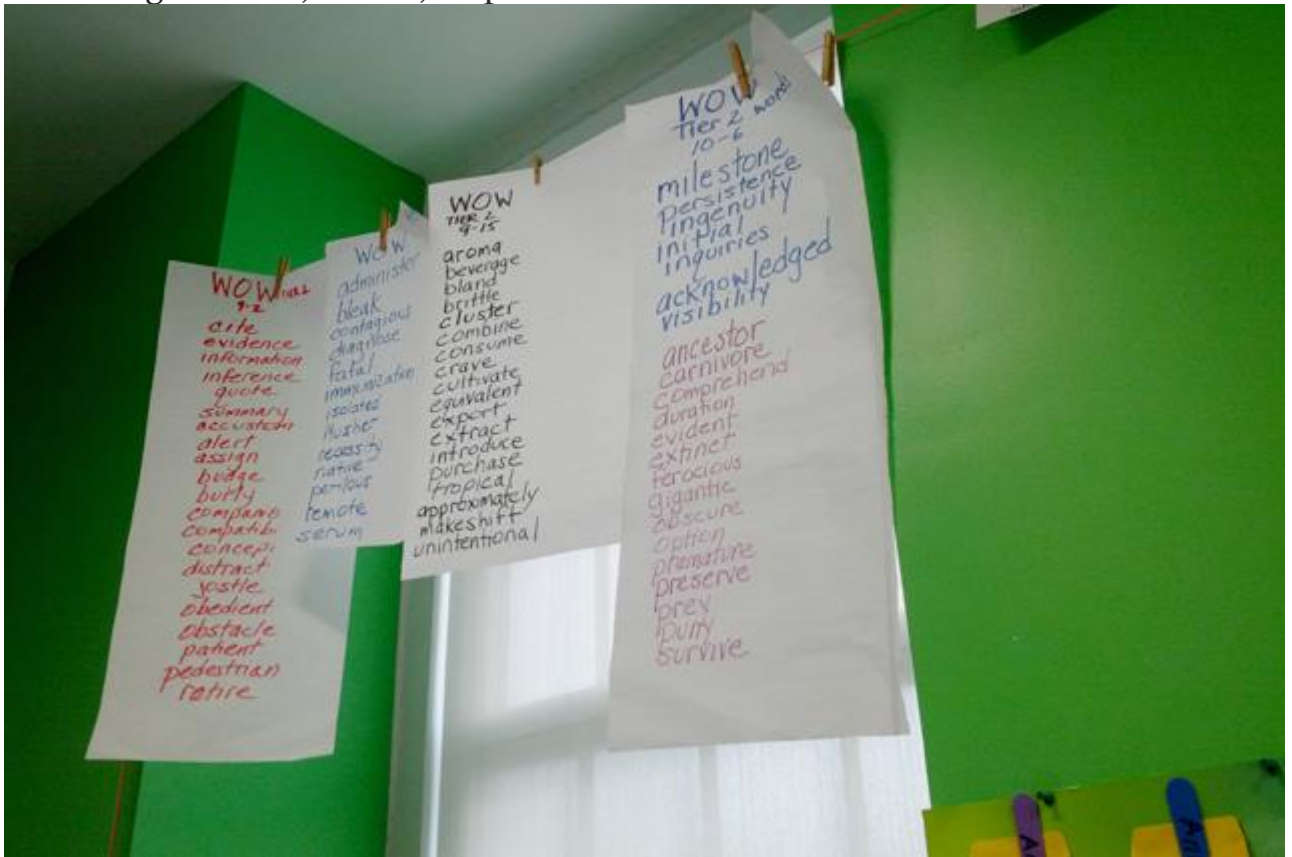 WOW
9-2
cite
evidence
information
inference
quote
summary
alert
assign
budge
burly
concep
distract
jostle
obedient
obstacle
patient
pedestrian
retire
WOW
administer
bleak
contagious
diagnose
fatal
immunization
isolated
musher
necessity
native
perilous
remote
serum
WOW
TIER 2
9-15
aroma
beverage
bland
brittle
cluster
combine
consume
crave
cultivate
equivalent
export
extract
introduce
purchase
tropical
approximately
makeshift
unintentional
WOW
Tier 2 word
10-6
milestone
persistence
ingenuity
initial
inquiries
acknowledged
visibility
ancestor
carnivore
comprehend
duration
evident
extinct
ferocious
gigantic
obscure
option
premature
preserve
prey
puny
survive